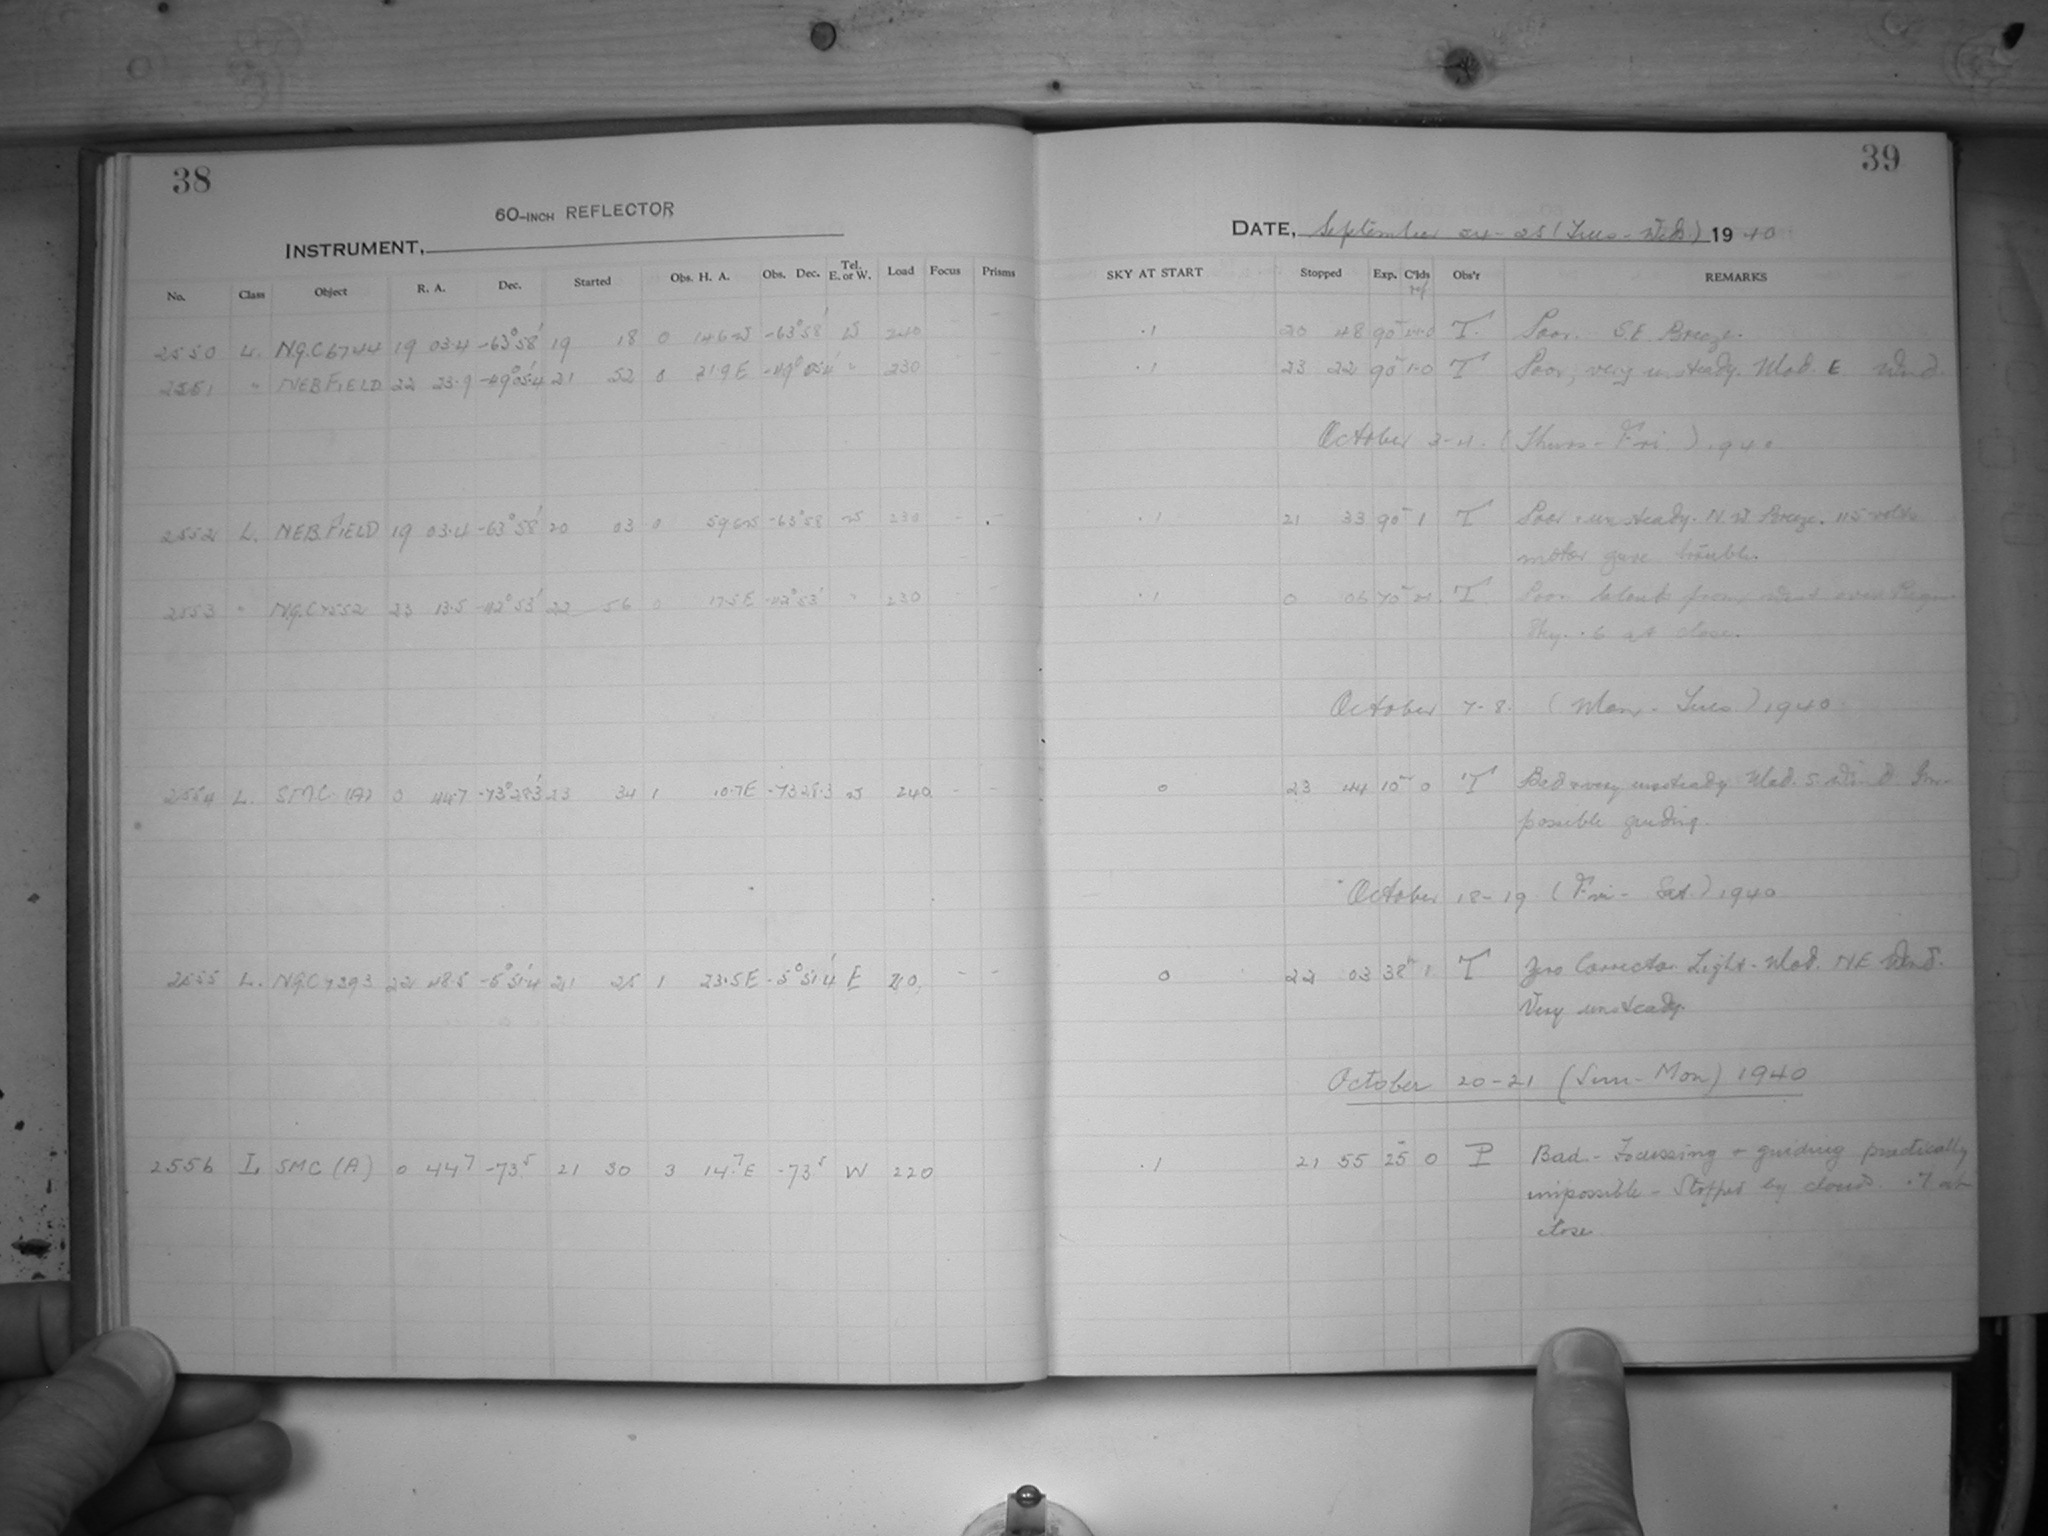 38
60-INCH REFLECTOR
INSTRUMENT,
No. Class Object R. A. Dec. Started Obs. H. A. Obs. Dec. Tel. E. or W. Load Focus Prisms
2550 L. N.G.C 6744 19 03.4 -63°58' 19 18 0 14.6 W -63°58' W 240
2551 " NEB FIELD 22 23.9 -49°05.4 21 52 0 31.9 E -49°05.4 " 230
2552 L. NEB. FIELD 19 03.4 -63°58' 20 03 0 59.6 W -63°58 W 230 - -
2553 " N.G.C 7552 23 13.5 -42°53' 22 56 0 17.5 E -42°53' " 230
2554 L. SMC. (A) 0 44.7 -73°28.3' 23 34 1 10.7 E -73 28.3 W 240 - -
2555 L. N.G.C 7293 22 48.5 -5°51.4 21 25 1 23.5 E -5°51.4 E 210 - -
2556 L SMC (A) 0 44.7 -73.5 21 30 3 14.7 E -73.5 W 220
39
DATE, September 24-25 (Tues-Wed) 1940
SKY AT START Stopped Exp. C'lds Obs'r REMARKS
.1 20 48 90 T. Poor. S.E. Breeze.
.1 23 22 90 1-0 T Poor, very unsteady. Mod. E Wind.
October 3-4. (Thurs-Fri.) 1940
.1 21 33 90 1 T Poor unsteady. N.W Breeze. 115 volts
motor gave trouble.
.1 0 06 70 T Poor clouds from West over Region
Sky .6 at close.
October 7-8. (Mon-Tues.) 1940
0 23 44 10 0 T Bad & very unsteady. Mod. S. Wind. Im-
possible guiding.
October 18-19 (Fri-Sat.) 1940
0 22 03 38 1 T Zero Corrector. Light-Mod. NE Wind.
Very unsteady.
October 20-21 (Sun-Mon) 1940
.1 21 55 25 0 P Bad - Focussing + guiding practically
impossible - Stopped by clouds. .7 at
close.